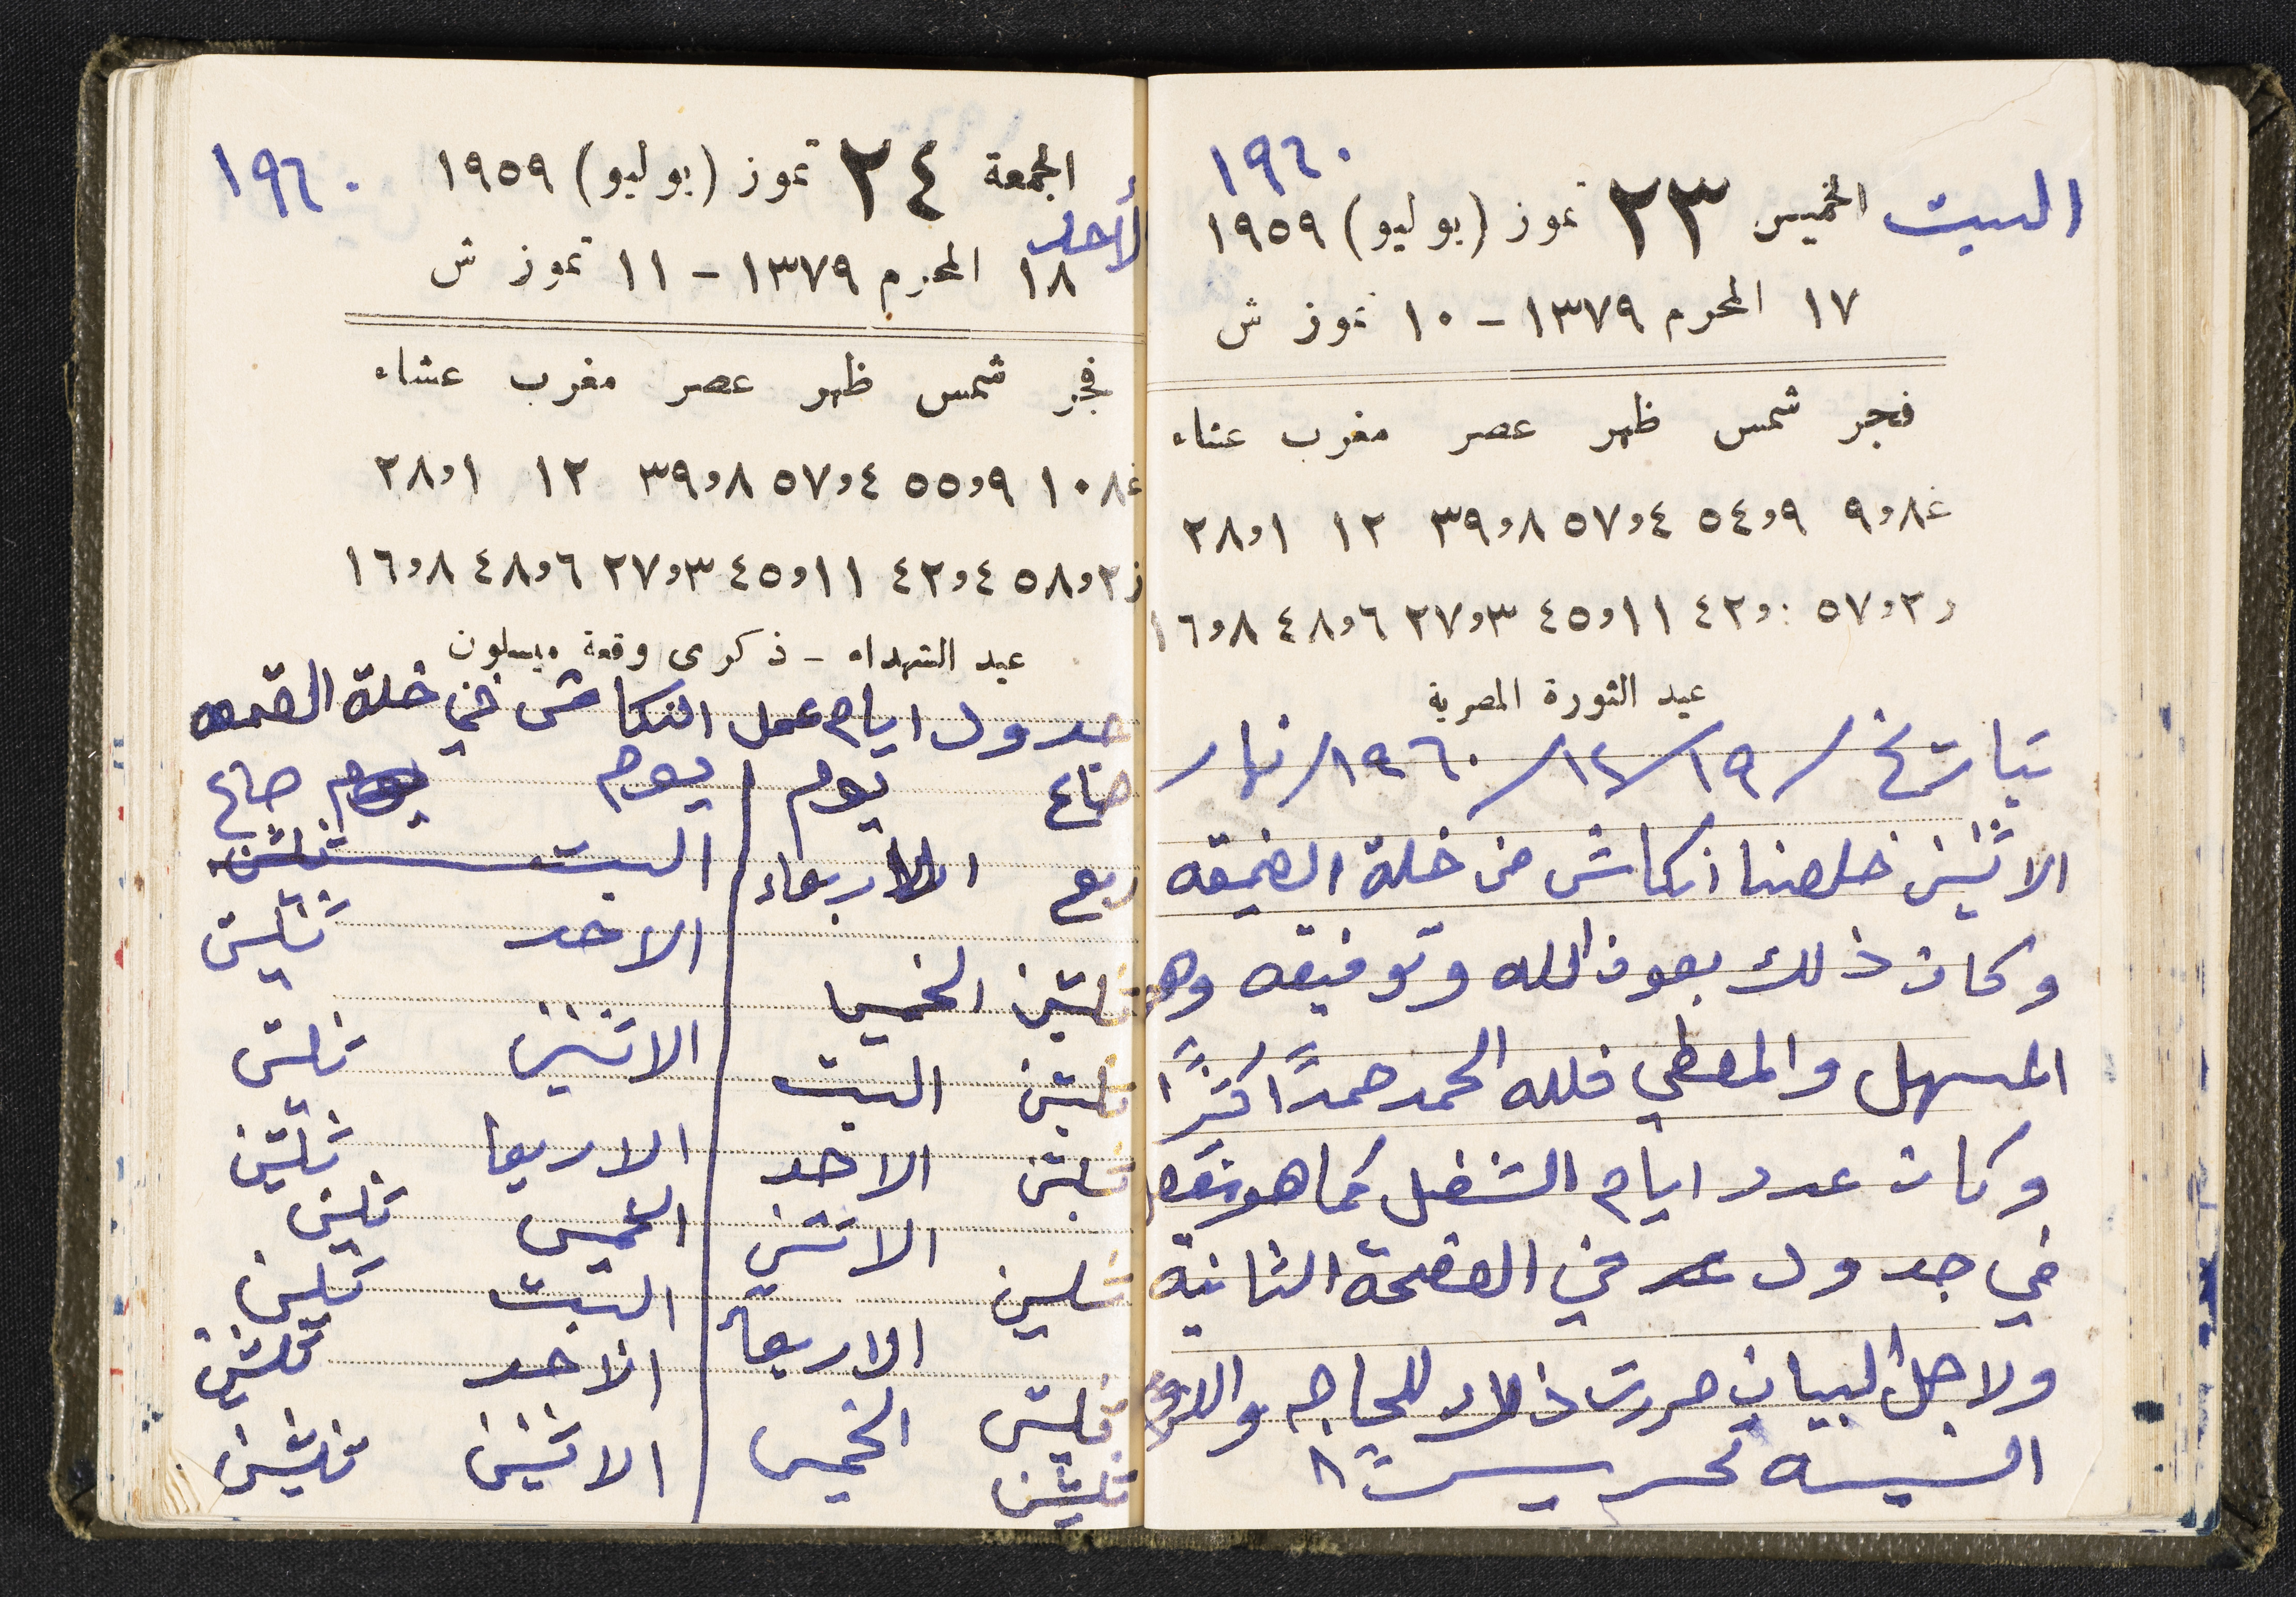 ١٩٦٠
السبت الخميس ٢٣ تموز (يوليو) ١٩٥٩
١٧ المحرم ١٣٧٩ - ١٠ تموز ش
فجر شمس ظهر عصر مغرب عشاء
غ ٨و٩ ٩و٥٤ ٤و٥٧ ٨و٣٩ ١٢ ١و٢٨
ز ٢و٥٧ ٠و٤٢ ١١و٤٥ ٣و٢٧ ٦و٤٨ ٨و١٦
عيد الثورة المصرية
بتاريخ /١٩/١٢/١٩٦٠/ نهار
الاثنين خلصنا انكاش من خلة الضميقه
وكان ذلك بعون الله وتوفيقه وهو
المسهل والمعطي فلله الحمد حمداً كثيراً
وكان عدد ايام الشغل كما هو
في جدول عد في الصفحة الثانية
ولاجل البيان حررت ذلك للحاجه
١٩٦٠
الجمعة ٢٤ تموز (يوليو) ١٩٥٩
لأحد
١٨ المحرم ١٣٧٩ - ١١ تموز ش
فجر شمس ظهر عصر مغرب عشاء
غ ٨و١٠ ٩و٥٥ ٤و٥٧ ٨و٣٩ ١٢ ١و٢٨
ز ٢و٥٨ ٤و٤٢ ١١و٤٥ ٣و٢٧ ٦و٤٨ ٨و١٦
عيد الشهداء - ذكرى وقعة ميسلون
جدول ايام عمل النكاش في خلة
صاع يوم يوم يوم صاع
ربع الاربعاء السبت ثلثين
الاحد ثلثين
ثلثين الخميس
الاثنين ثلثين
ثلثين السبت
الاربعا ثلثين
ثلثين الاحد
الخميس ثلثين
ثلثين الاثنين
السبت ثلثين
الاربعا
الاحد ثلثين
ثلثين الخميس
الاثنين ثلثين
ثلثين